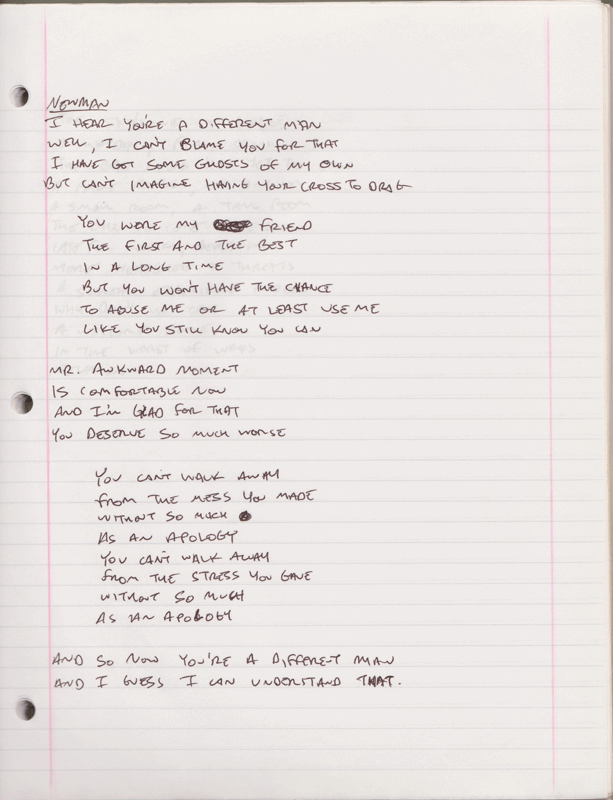 NEWMAN
I HEAR YOU'RE A DIFFERENT MAN
WELL, I CAN'T BLAME YOU FOR THAT
I HAVE GOT SOME GHOSTS OF MY OWN
BUT CAN'T IMAGINE HAVING YOUR CROSS TO DRAG
YOU WERE MY FRIEND
THE FIRST AND THE BEST
IN A LONG TIME
BUT YOU WON'T HAVE THE CHANCE
TO ABUSE ME OR AT LEAST USE ME
LIKE YOU STILL KNOW YOU CAN
MR. AWKWARD MOMENT
IS COMFORTABLE NOW
AND I'M GLAD FOR THAT
YOU DESERVE SO MUCH WORSE
YOU CAN'T WALK AWAY
FROM THE MESS YOU MADE
WITHOUT SO MUCH
AS AN APOLOGY
YOU CAN'T WALK AWAY
FROM THE STRESS YOU GAVE
WITHOUT SO MUCH
AS AN APOLOGY
AND SO NOW YOU'RE A DIFFERENT MAN
AND I GUESS I CAN UNDERSTAND THAT.